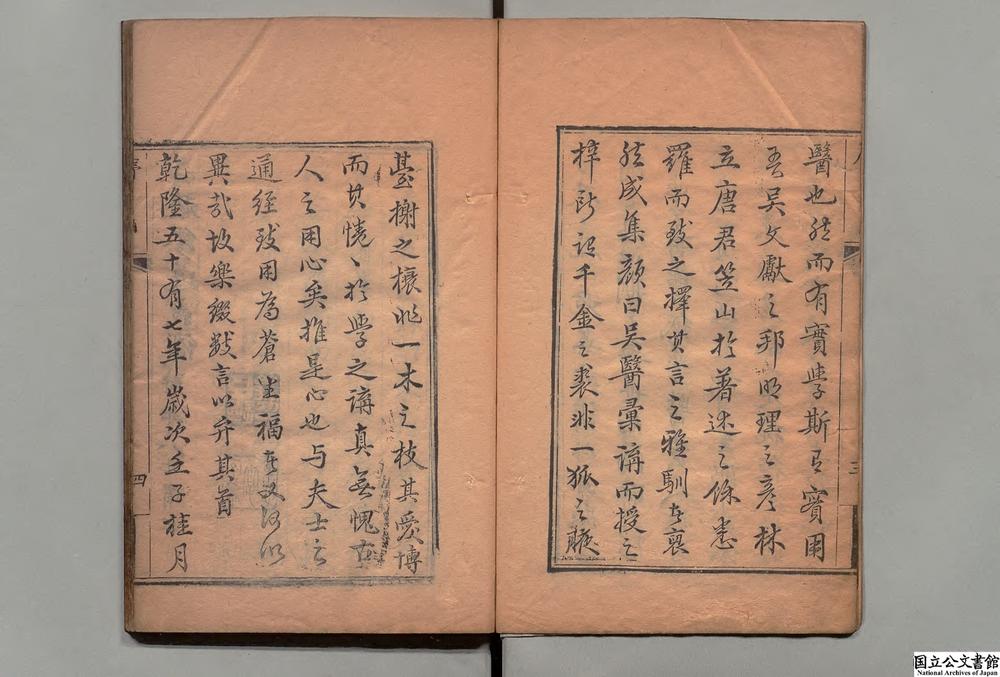 醫也然而有實學斯有實用
吾吴文獻之邦明理之彦林
立唐君笠山於著述之餘悉
羅而致之擇其言之雅馴者裒
然成集顔曰吴醫彙講而授之
梓所謂千金之裘非一狐之腋
三
臺榭之榱非一木之枝其爱博
而其惓〻於學之講真無愧古
人之用心矣推是心也与夫士之
通經致用為蒼生福者又何以
異哉故樂綴數言以弁其首
乾隆五十有七年歲次壬子桂月
四
国立公文書館
National Archives of Japan